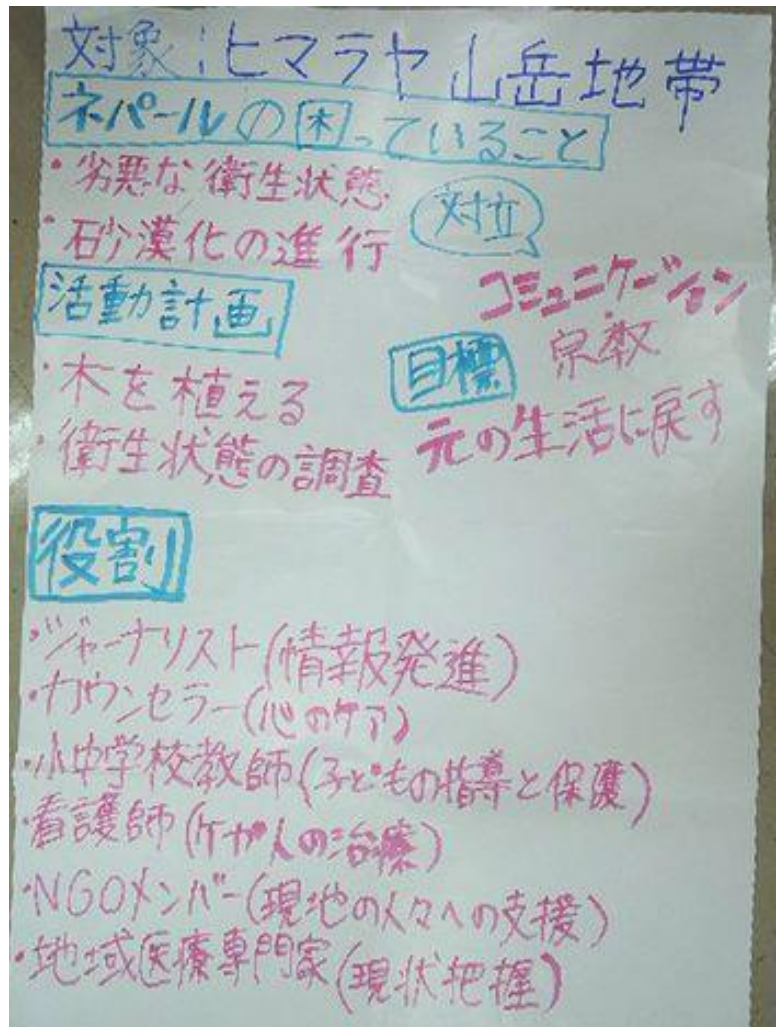 対象:ヒマラヤ山岳地帯
ネパールの困っていること
・劣悪な衛生状態
・砂漠化の進行
対立
コミュニケーション
・宗教
活動計画
・木を植える
・衛生状態の調査
目標
元の生活に戻す
役割
・ジャーナリスト(情報発進)
・カウンセラー(心のケア)
・小中学校教師(子どもの指導と保護)
・看護師(ケガ人の治療)
・NGOメンバー(現地の人々への支援)
・地域医療専門家(現状把握)